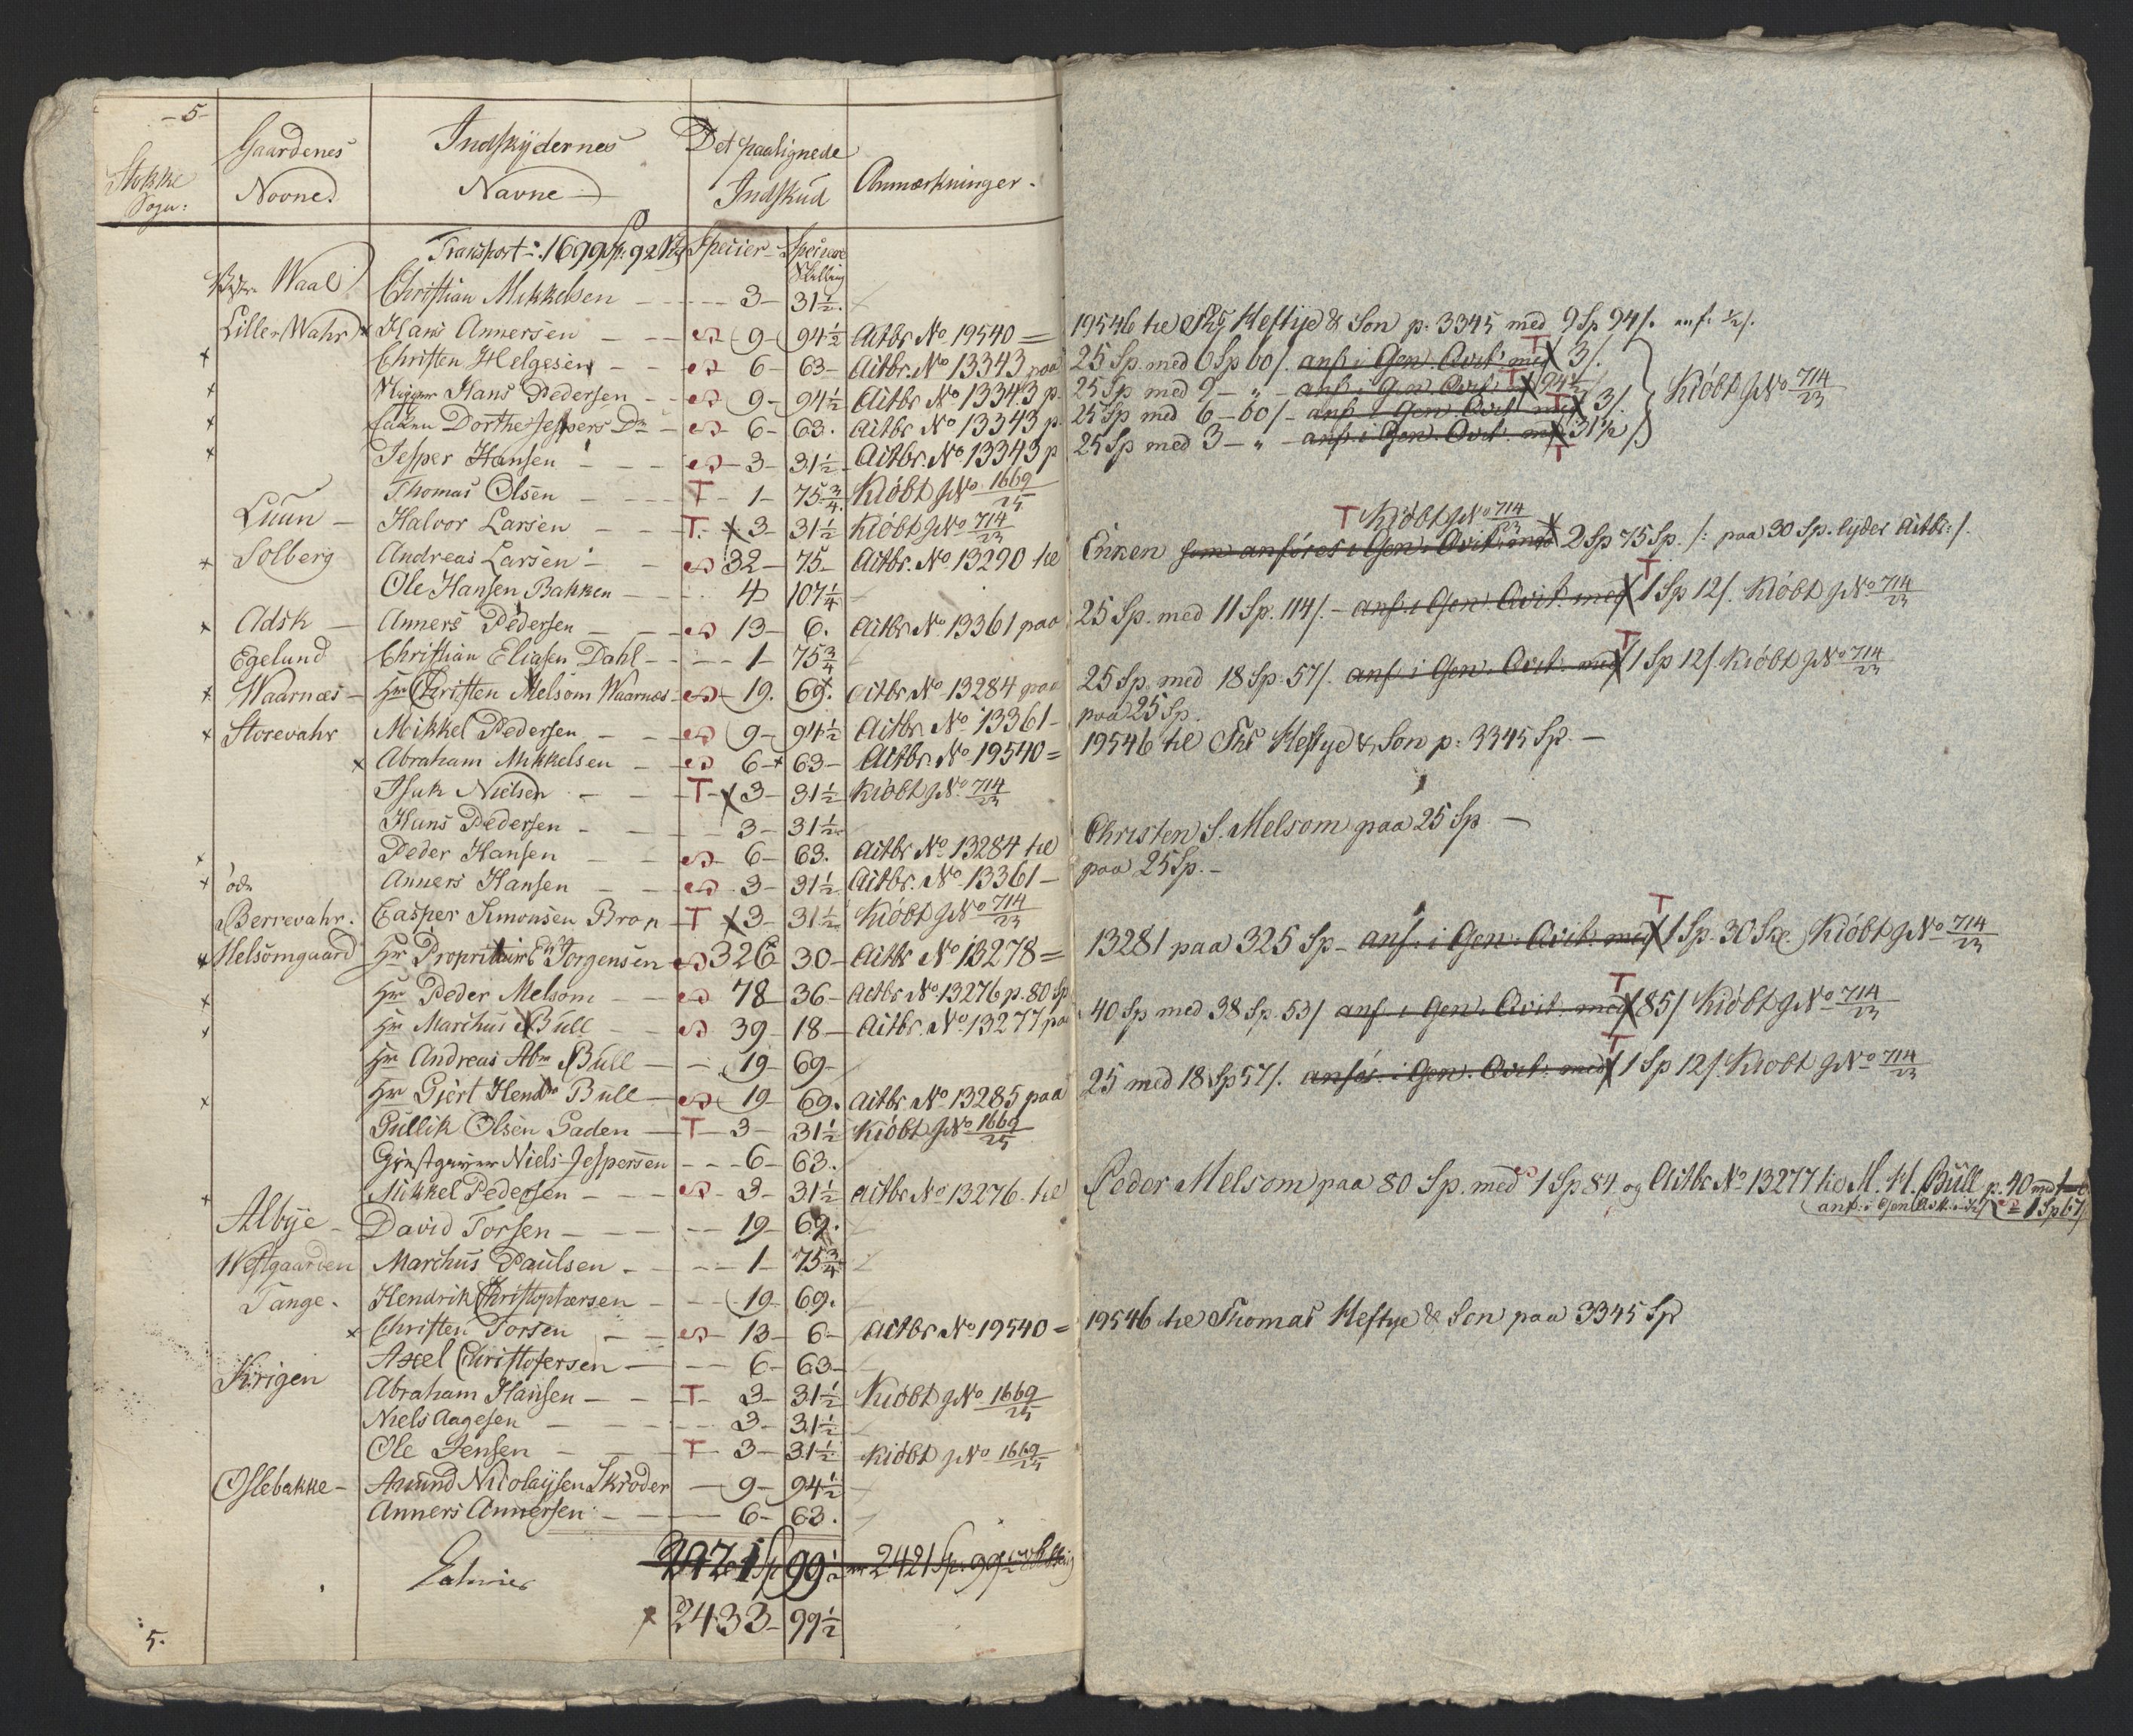 -5-
Stokke Sogn: Gaardenes Navne Indskÿdernes Navne Det paalignede Indskud Anmærkninger.
Transport: 1699 Sp. 92 Specier Specier Skilling
Waal Christian Mikkelsen 3 31½
Lille Wahr Hans Annersen 9 94½ Actbr. No 19540 = 19546 til Ths Heftije & Søn p. 3345 med 9 Sp 94/. anf. ½/.
Christen Helgesen 6 63 Actbr. No 13343 paa 25 Sp. med 6 Sp 60/. anf. i Gen. Qvit. med 3/.
Hans Pedersen 9 94½ Actbr No 13343 p. 25 Sp med 9 - " - anf. i Gen. Qvit. 94½/.
Dorthe Jespers Dr 6 63. Actbr No 13343 p. 25 Sp med 6 - 60/- anf. i Gen. Qvit. med 3/. Kiøbt J No 714/23
Jesper Hansen 3 31½ Actbr. No 13343 p 25 Sp med 3 - " - anf. i Gen. Qvit. med 31½/.
Thomas Olsen T 1 75¾ Kiøbt J No 1669/25
T Kiøbt J No 714/23
Luun Halvor Larsen T. x 3 31½ Kiøbt J No 714/23
Solberg Andreas Larsen 32 75 Actbr. No 13290 til Enken som anføres i Gen. Qvit. med 2 Sp 75 Sp. /: paa 30 Sp. lyder Actbr:/.
Ole Hansen Bakken 4 107¼
Adsk Anners Pedersen 13 6. Actbr No 13361 paa 25 Sp. med 11 Sp. 114/. anf. i Gen. Qvit. med T 1 Sp 12/. Kiøbt J No 714/23
Egelund Christian Eliasen Dahl 1 75¾
Waarnæs Hr Christen Melsom Waarnæs 19. 69. Actbr No 13284 paa 25 Sp. med 18 Sp. 57/. anf. i Gen. Qvit. med T 1 Sp 12/. Kiøbt J No 714/23
Storevahr Mikkel Pedersen 9 94½ Actbr. No 13361 - paa 25 Sp.
Abraham Mikkelsen 6 63 Actbr. No 19540 = 19546 til Ths Heftye & Søn p: 3345 Sp.
Isak Nielsen T x 3 31½ Kiøbt J No 714/23
Hans Pedersen 3 31½
Peder Hansen 6 63. Actbr No 13284 til Christen S. Melsom paa 25 Sp
Anners Hansen 3 31½ Actbr. No 13361 - paa 25 Sp.
Berrevahr. Casper Simonsen T x 3 31½ Kiøbt J No 714/23
Melsomgaard Hr Jørgensen 326 30 Actbr No 13278 = 13281 paa 325 Sp - anf. i Gen. Qvit. med T 1 Sp. 30 Sk. Kiøbt J No 714/23
Hr Peder Melsom 78 36 Actbr No 13276 p. 80 Sp
Hr Marchus Bull 39 18 Actbr. No 13277 paa 40 Sp med 38 Sp. 53/ anf. i Gen. Qvit. med T 85/ Kiøbt J No 714/23
Hr Andreas Abm Bull 19 69
Hr Gjert Hendr Bull 19 69. Actbr No 13285 paa 25 med 18 Sp 57/. anfør. i Gen. Qvit. med T 1 Sp 12/. Kiøbt J No 714/23
Gullik Olsen Gaden T 3 31½ Kiøbt J No 1669/25
Niels Jespersen 6 63.
Mikkel Pedersen 3 31½ Actbr No 13276 til Peder Melsom paa 80 Sp. med 1 Sp 84. og Actbr No 13277 til M. H. Bull p. 40 med
anf. i Gen. Qvit. 1 Sp 67/.
Albÿe David Torsen 19 69.
Westgaarden Marchus Paulsen 1 75¾
Tange Hendrik Christophersen 19 69.
Christen Torsen 13 6 Actbr No 19540 = 19546 til Thomas Heftye & Søn paa 3345 Sp
Krigen Axel Christofersen 6 63
Abraham Hansen T 3 31½ Kiøbt J No 1669/25
Niels Aagesen 3 31½
Ole Jensen T 3 31½ Kiøbt J No 1669/25
Oslebakke Amund Nicolaÿsen Skrøder 9 94½
Anners Annersen 6 63.
Latus 2421 Sp 99½ 2421 Sp. 99½
2433 99½
5.